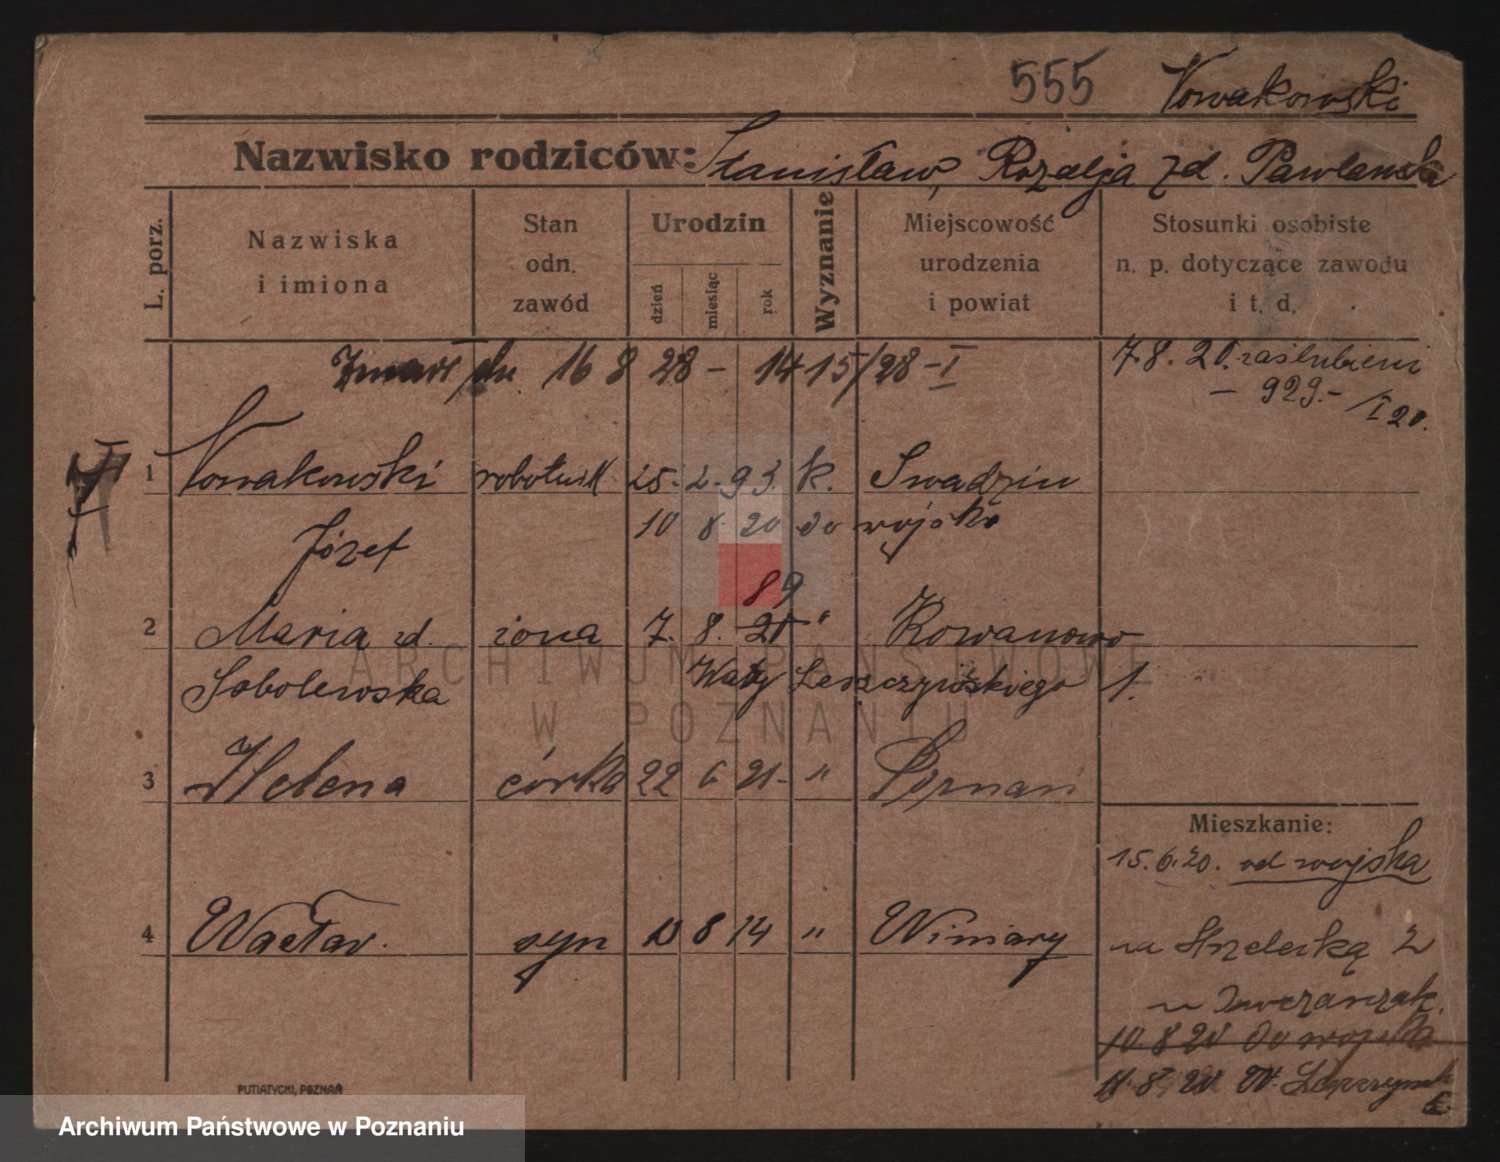 555 Nowakowski
Nazwisko rodziców: Stanisław, Rozalja zd. Pawlawska
L. porz.
Nazwiska
i imiona
Stan
odn.
zawód
Urodzin
dzień
miesiąc
rok
Wyznanie
Miejscowość
urodzenia
i powiat
Stosunki osobiste
n. p. dotyczące zawodu
i t. d.
Zmarł dn 16 8 28 - 1415/28 - I
7.8.20. zaślubieni
- 929.- / I 20.
1 Nowakowski robotnik 25. 2. 93. k. Swadzim
10 8 20 do wojska
Józef
89
2 Maria zd. żona 7. 8. 20 " Rowanowo
Sobolewska Wały Leszczyńskiego 1.
3 Helena córka 22 6 21- " Poznań
Mieszkanie:
15.6.20. od wojska
4 Wacław. syn 13 8 14 " Winiary
na Strzelecką 2
10.8 20 do wojska
11. 8. 20.
PUTIATYCKI, POZNAŃ
ARCHIWUM PAŃSTWOWE
W POZNANIU
Archiwum Państwowe w Poznaniu